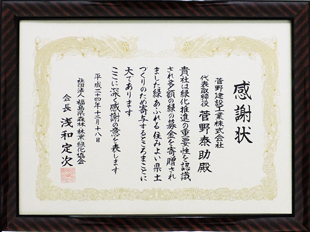 感謝状
菅野建設工業株式会社
代表取締役 菅野泰助殿
貴社は緑化推進の重要性を認識
され多額の緑の募金を寄贈され
ました緑あふれる住みよい県土
づくりのため寄与するところまことに
大であります
ここに深く感謝の意を表します
平成二十四年十二月十八日
社団法人福島県森林・林業・緑化協会
会長 浅和定次